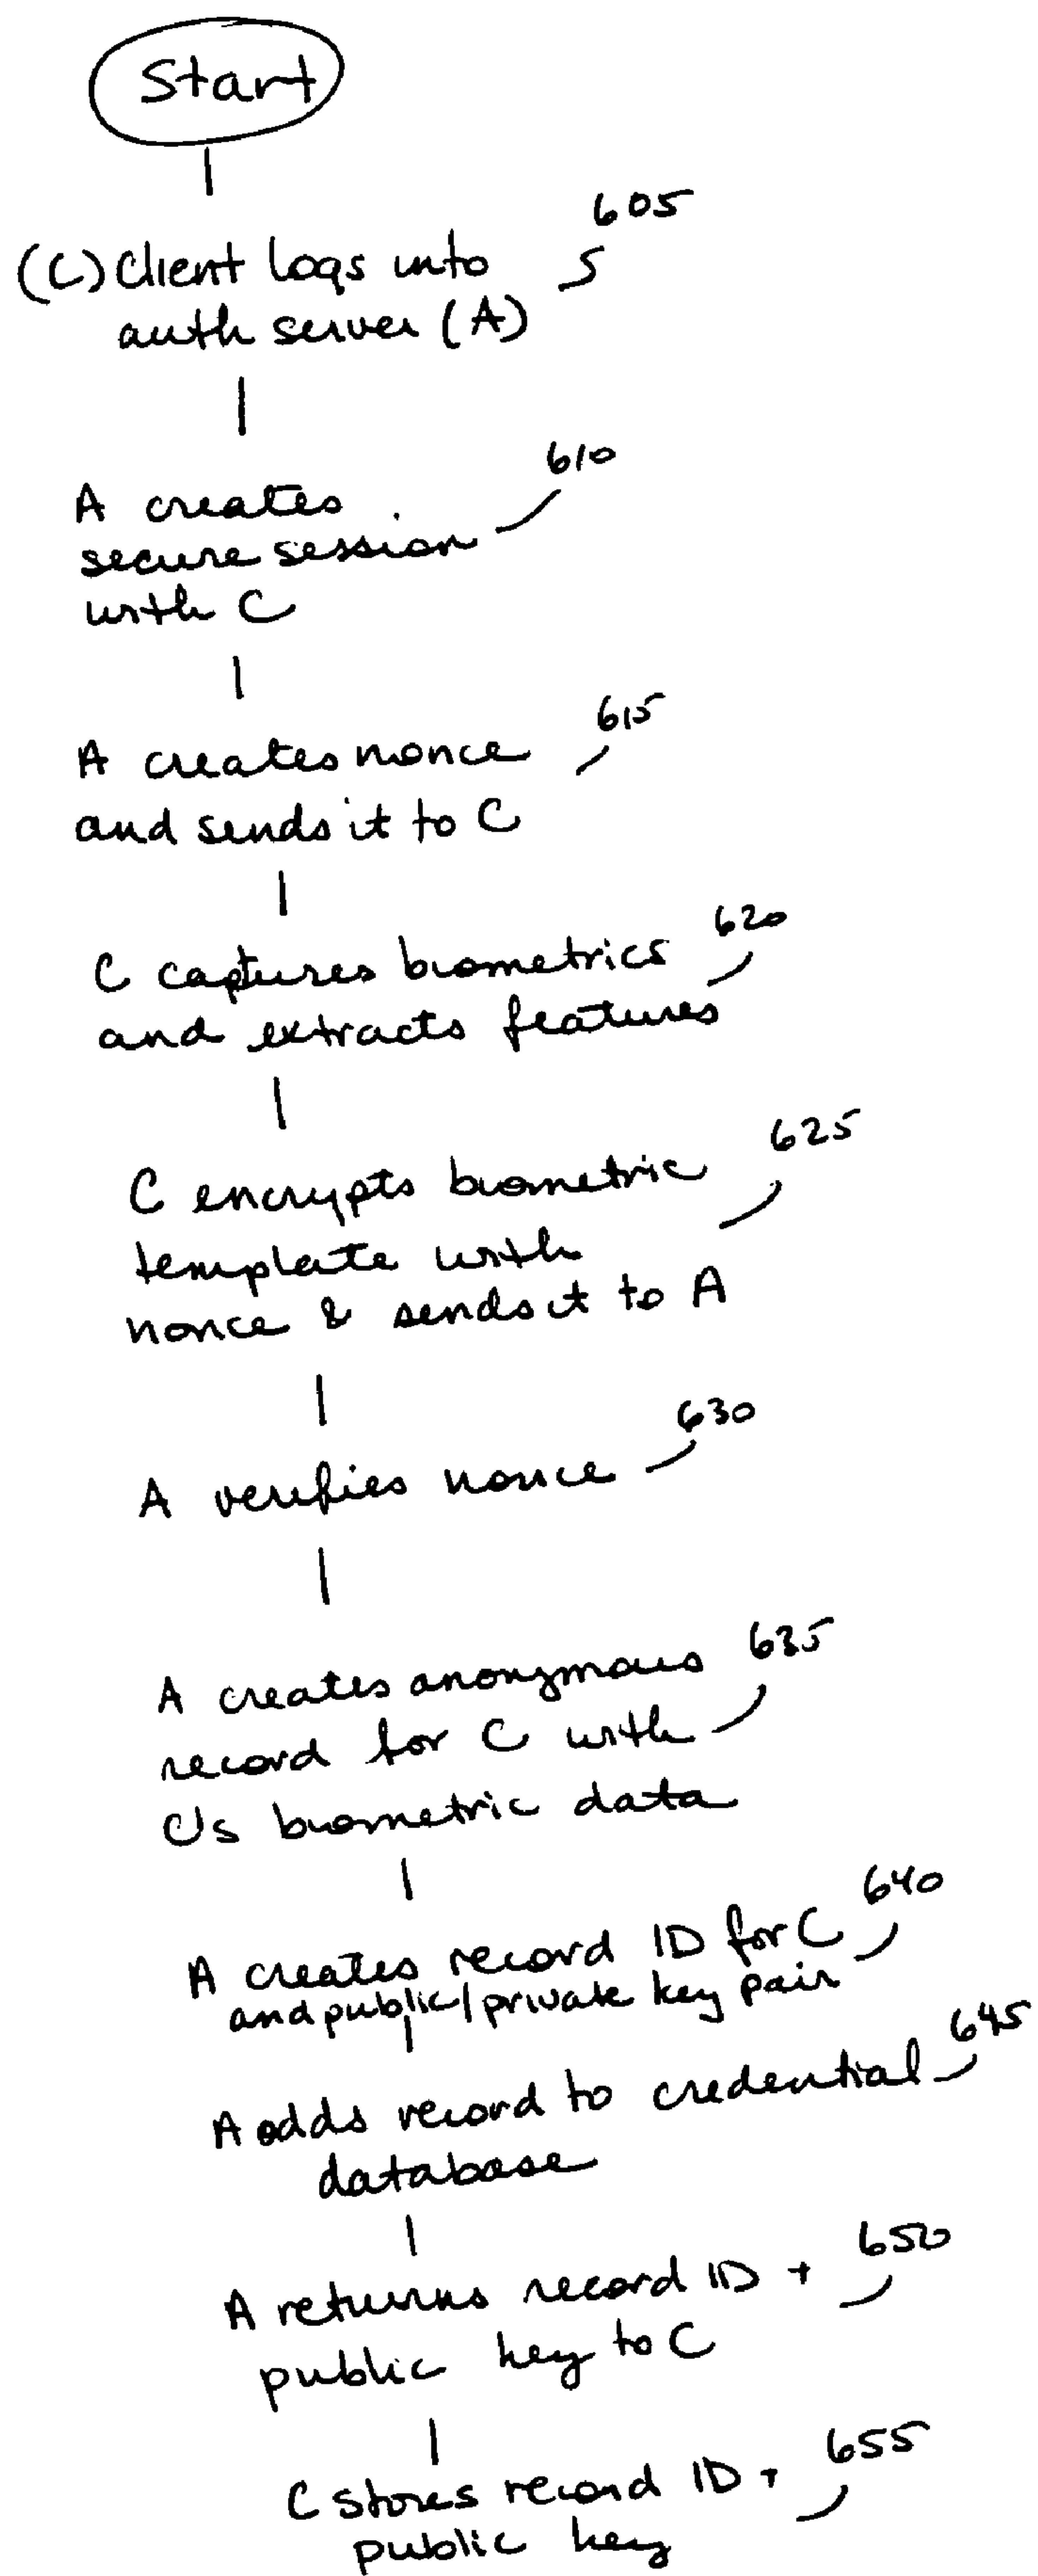 Start
605
(C) Client logs into
auth server (A)
610
A creates
secure session
with C
615
A creates nonce
and sends it to C
620
C captures biometrics
and extracts features
625
C encrypts biometric
template with
nonce & sends it to A
630
A verifies nonce
635
A creates anonymous
record for C with
C's biometric data
640
A creates record ID for C
and public/private key pair
645
A adds record to credential
database
650
A returns record ID +
public key to C
655
C stores record ID +
public key